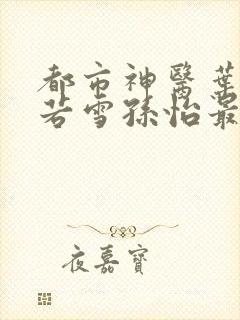 都市神醫葉
若雪孫怡最
夜嘉寶